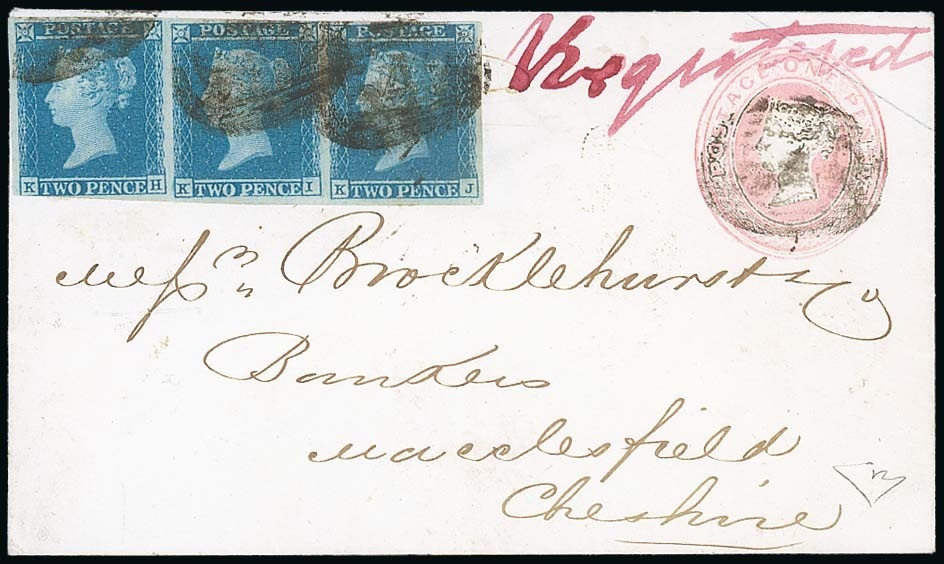 POSTAGE POSTAGE POSTAGE
K TWO PENCE H K TWO PENCE I K TWO PENCE J
Registered
POSTAGE ONE PENNY
Messrs Brocklehurst & Co
Bankers
Macclesfield
Cheshire